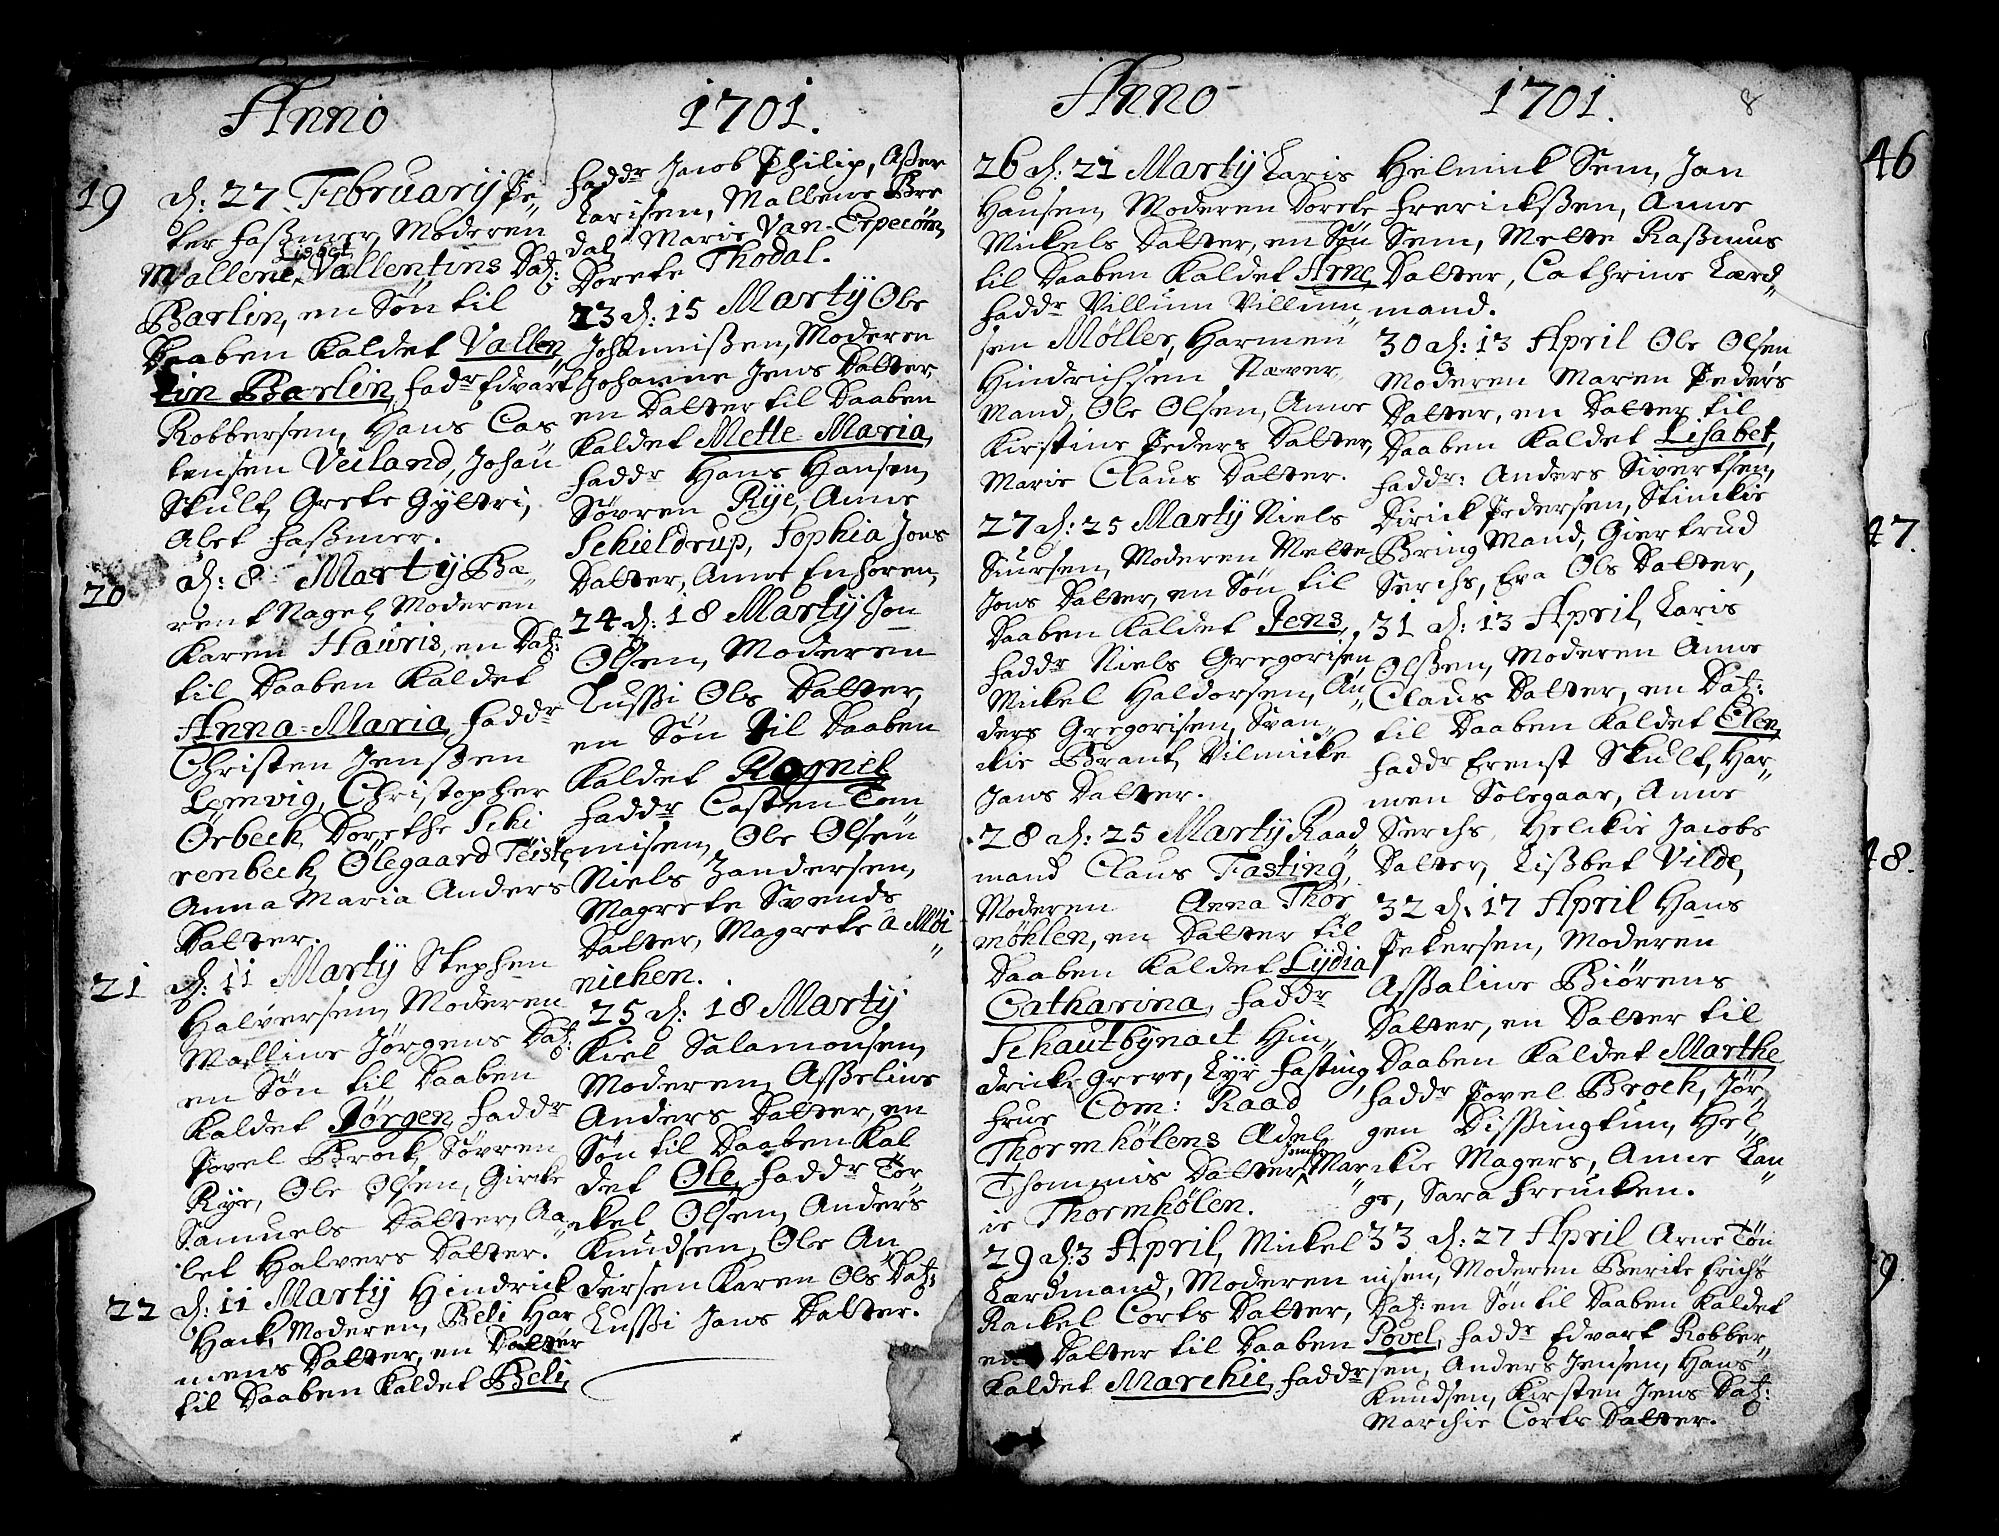 Anno 1701.
19 d: 27 Februarij Pe„
ter Fasmer, Moderen
Mallene Lisbet Vallentins Dat:
Barlin, en Søn til
Daaben Kaldet Vallen
tin Barlin, Fadr Edvart
Robbersen, Hans Cas
tensen Veiland, Johan
Skult, Grete Gyltri,
Alet Fasmer.
20 d: 8 Martij Ba„
rent Nagel, Moderen
Karen Hauris, en Dat:
til Daaben Kaldet
Anna-Maria, Faddr
Christen Jenssen
Lemvig, Christopher
Örbech, Dorethe Schi
renbech, Ölegaard Teiste,
Anna Maria Anders
Datter.
21 d: 11 Martij Stephen
Halversen, Moderen
Malline Jørgens Dat:
en Søn til Daaben
Kaldet Jørgen, Faddr
Povel Brock, Søvren
Rye, Ole Olsen, Gircke
Samuels Datter, Aa„
let Halvers Datter.
22 d: 11 Martij Hindrick
Hack, Moderen, Beli Har
mens Datter, en Datter
til Daaben Kaldet Beli,
Faddr Jacob Philip, Asser
Larisen, Mallene Bre
dal, Marie Van-Erpecom,
Dorete Thodal.
23 d: 15 Martij Ole
Johannissen, Moderen
Johanne Jens Datter,
en Datter til Daaben
Kaldet Mette-Maria,
Faddr Hans Hansen,
Søvren Rye, Anne
Schieldrup, Sophia Jons
Datter, Anne Enhoren,
24 d: 18 Martij Jon
Olsen, Moderen
Lussi Ols Datter,
en Søn til Daaben
Kaldet Rognel,
Faddr Casten Ton
misen, Ole Olsen
Niels Zandersen,
Magrete Svends
Datter, Magrete a Möi
nichen.
25 d: 18 Martij
Kiel Salamonsen,
Moderen, Asseline
Anders Datter, en
Søn til Daaben Kal
det Ole, Faddr Tör
ckel Olsen, Anders
Knudsen, Ole An
dersen Karen Ols Dat:
Lussi Jans Datter.
Anno 1701. 8
26 d: 21 Martij Laris
Hansen, Moderen Dorete
Mickels Datter, en Søn
til Daaben Kaldet Arne,
Faddr Villum Villum
sen Møller, Harmen
Hindrichsen Næver
Mand, Ole Olsen, Anne
Kirstine Peders Datter,
Marie Claus Datter.
27 d: 25 Martij Niels
Siursen, Moderen Mette
Jons Datter, en Søn til
Daaben Kaldet Jens,
Faddr Niels Gregorisen,
Mickel Haldorsen, An„
ders Gregorisen, Svan„
ckie Brant, Vilmicke
Jans Datter.
28 d: 25 Martij Raad
mand Claus Fasting,
Moderen Anna Thor
möhlen, en Datter til
Daaben Kaldet Lydia
Catharina, Faddr
Schautbynact Hin„
dricke Greve, Lyr Fasting,
Frue Com: Raad
Thormhölens Ædel
Thommis Datter, Jomfr Marckie
ie Thormhölen.
29 d: 3 April, Mickel
Lærdmand, Moderen
Rackel Corts Datter,
en Datter til Daaben
Kaldet Marchie, Faddr
Helmick Sem, Jan
Frerickssen, Anne
Sem, Mette Rasmus
Datter, Cathrine Lærd„
mand.
30 d: 13 April Ole Olsen
Moderen Maren Peders
Datter, en Datter til
Daaben Kaldet Lisabet,
Faddr: Anders Sivertsen,
Dirick Pedersen, Stinckie
Bring Mand, Giertrud
Serchs, Eva Ols Datter,
31 d: 13 April, Laris
Olssen, Moderen Anne
Claus Datter, en Dat:
til Daaben Kaldet Elen,
Faddr Erenst Skult, Har„
men Solegaar, Anne
Serchs, Helckie Jacobs
Datter, Lissbet Vilde,
32 d: 17 April Hans
Petersen, Moderen
Assaline Biörens
Datter, en Datter til
Daaben Kaldet Marthe
Faddr Povel Broch, Jør„
gen Dissingtun, Hel„
ckie Magers, Anne Lan
ge, Sara Freucken.
33 d: 27 April Arne Tøn
nisen, Moderen Berite Erichs
Dat: en Søn til Daaben Kaldet
Povel, Faddr Edvart Robber„
sen, Anders Jensen, Hans
Knudsen, Kirsten Jens Dat:
Marchie Corts Datter.
46
47.
48.
49.